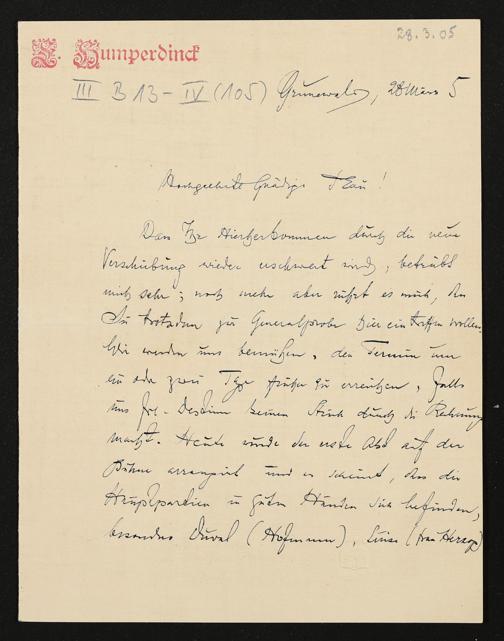 28.3.05
E. Humperdinck
III B 13 - IV (105) Grunewald, 28 März 5
Hochgeehrte Gnädige Frau!
Dass Ihr Hierherkommen durch die neue
Verschiebung wieder erschwert wird, betrübt
mich sehr; noch mehr aber rührt es mich, dass
Sie trotzdem zur Generalprobe hier eintreffen wollen.
Wir werden uns bemühen, den Termin um
ein oder zwei Tage früher zu erreichen, falls
uns Frl. Destinn keinen Strich durch die Rechnung
macht. Heute wurde der erste Akt auf der
Bühne arrangirt und es scheint, dass die
Hauptpartien in guten Händen sich befinden,
besonders Duval (Hofmann), Luise (Frau Herzog)